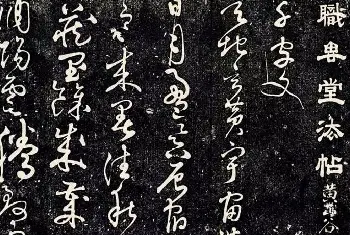 職思堂法帖
千字文
天地玄黃宇宙
日月盈昃辰宿
寒來暑往秋
藏閏餘成歲
調陽雲騰致